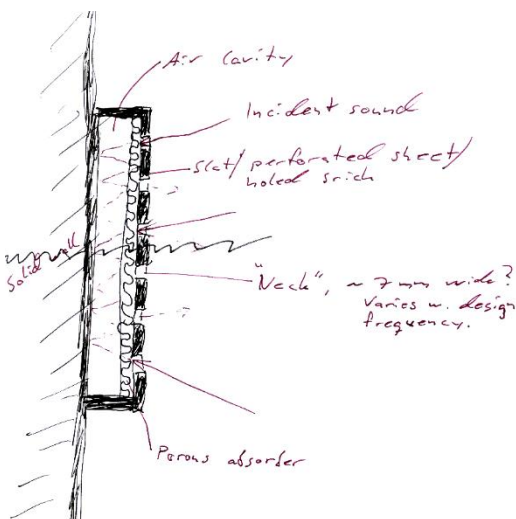 Air cavity
Incident sound
Slat/ perforated sheet/
holed
Solid wall
"Neck", ~ 7 mm wide?
Varies w. design
frequency.
Porous absorber